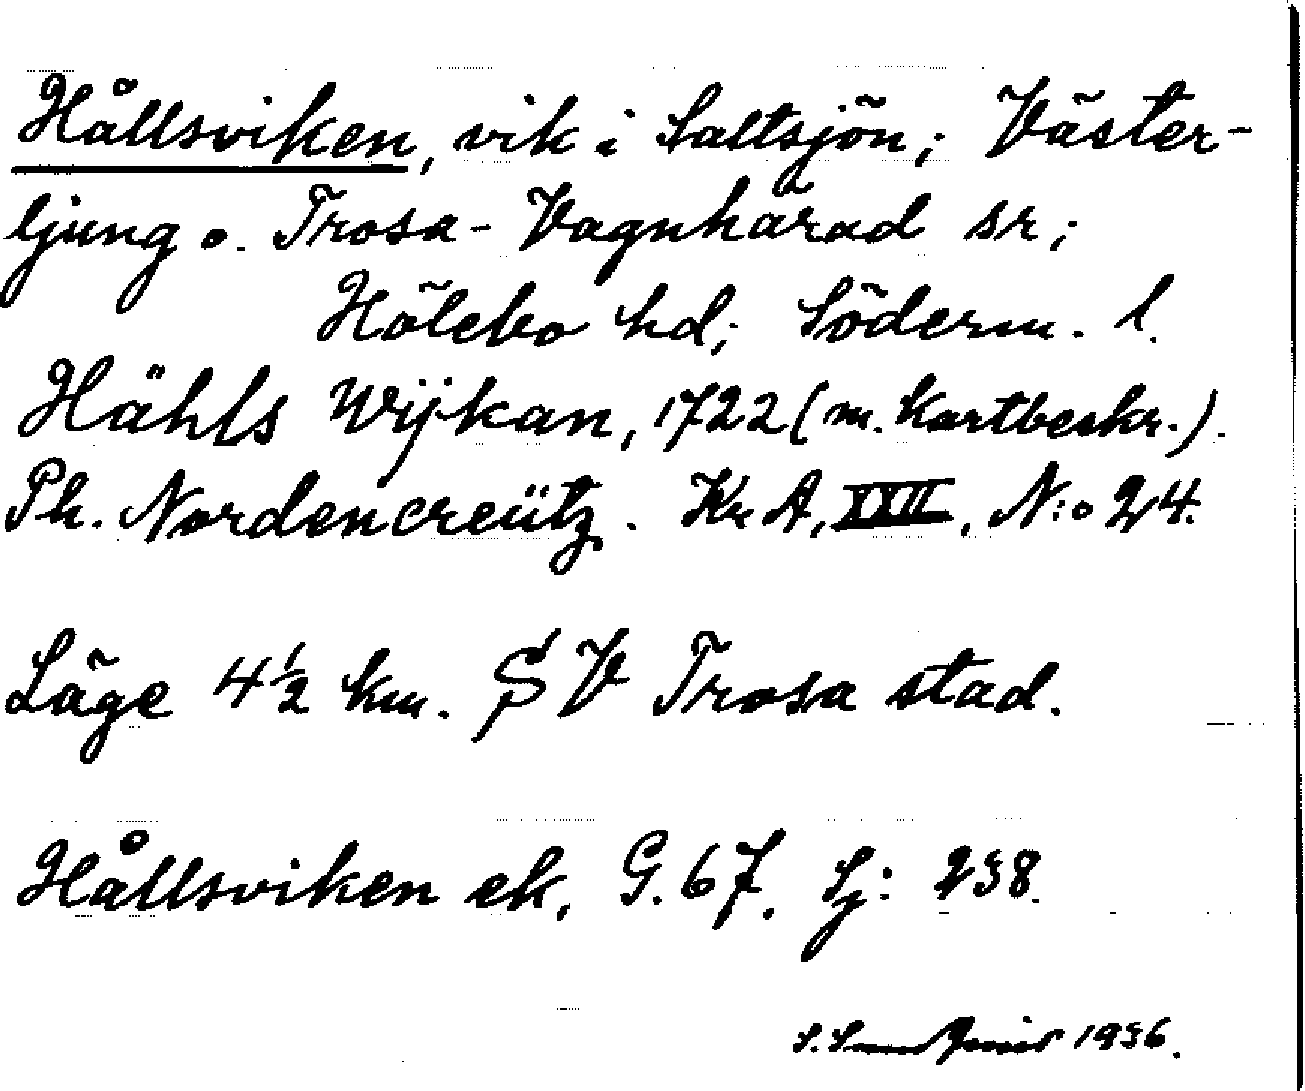 Hållsviken, vik i Saltsjön; Väster-
ljung o. Trosa-Vagnhärad sr;
Hölebo hd; Söderm. l.
Hähls Wijkan, 1722 (m. Kartbeskr.).
Ph. Nordencreütz. Kr A, XXII, N:o 24.
Läge 4½ km. SV Trosa stad.
Hållsviken ek, G. 67. Sj: 238.
1936.